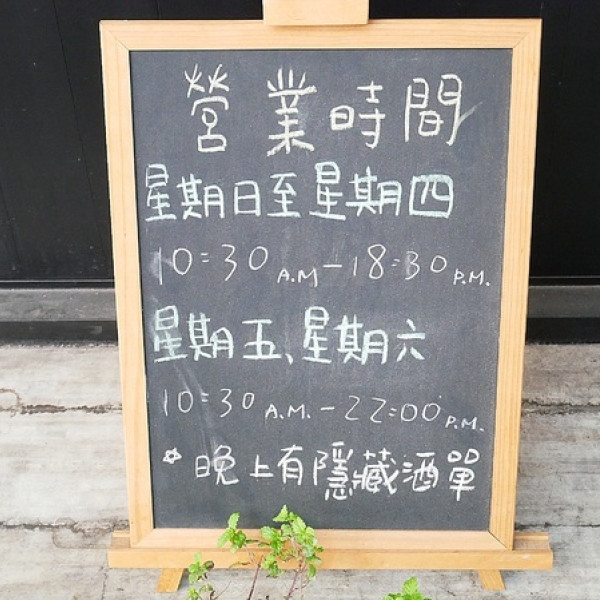 營業時間
星期日至星期四
10:30 A.M - 18:30 P.M.
星期五、星期六
10:30 A.M. - 22:00 P.M.
☆ 晚上有隱藏酒單